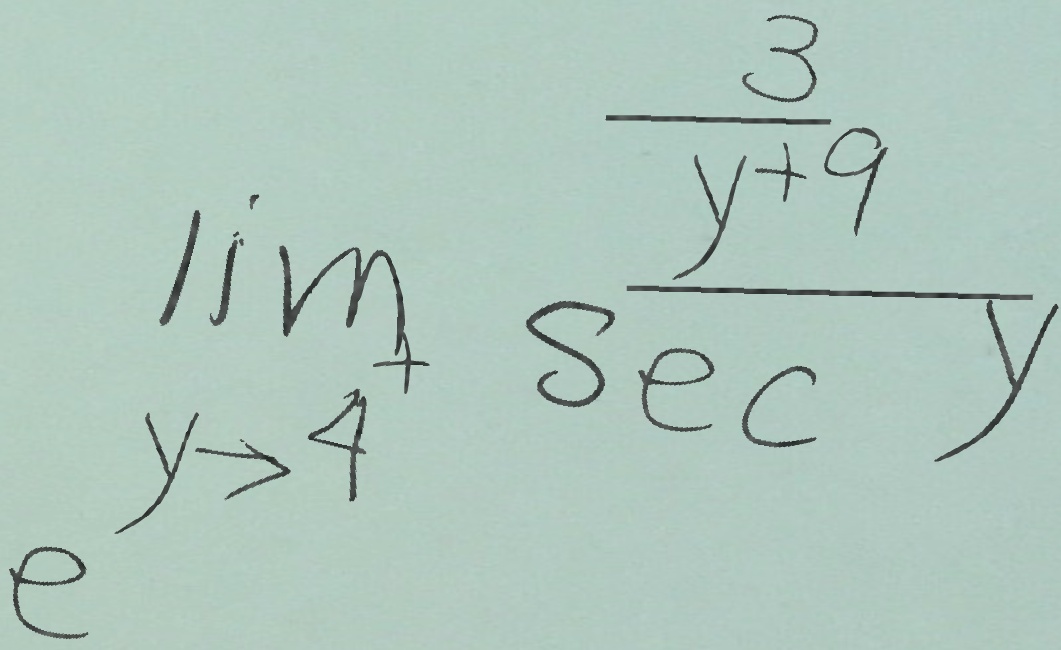 e^{\lim_{y \to 4^+} \frac{\frac{3}{y+9}}{\sec y}}